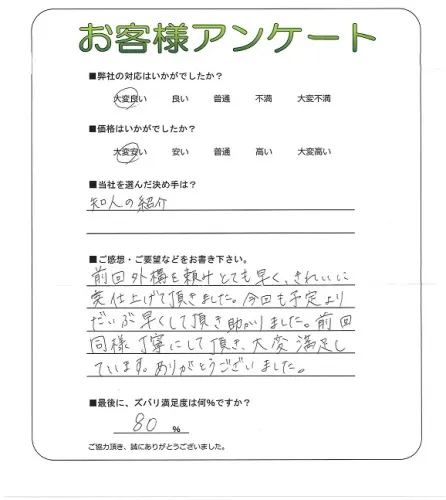 お客様アンケート
■弊社の対応はいかがでしたか？
大変良い 良い 普通 不満 大変不満
■価格はいかがでしたか？
大変安い 安い 普通 高い 大変高い
■当社を選んだ決め手は？
知人の紹介
■ご感想・ご要望などをお書き下さい。
前回外構を頼みとても早く、きれいに
実仕上げて頂きました。今回も予定より
だいぶ早くして頂き助かりました。前回
同様丁寧にして頂き、大変満足し
ています。ありがとうございました。
■最後に、ズバリ満足度は何％ですか？
80 %
ご協力頂き、誠にありがとうございました。